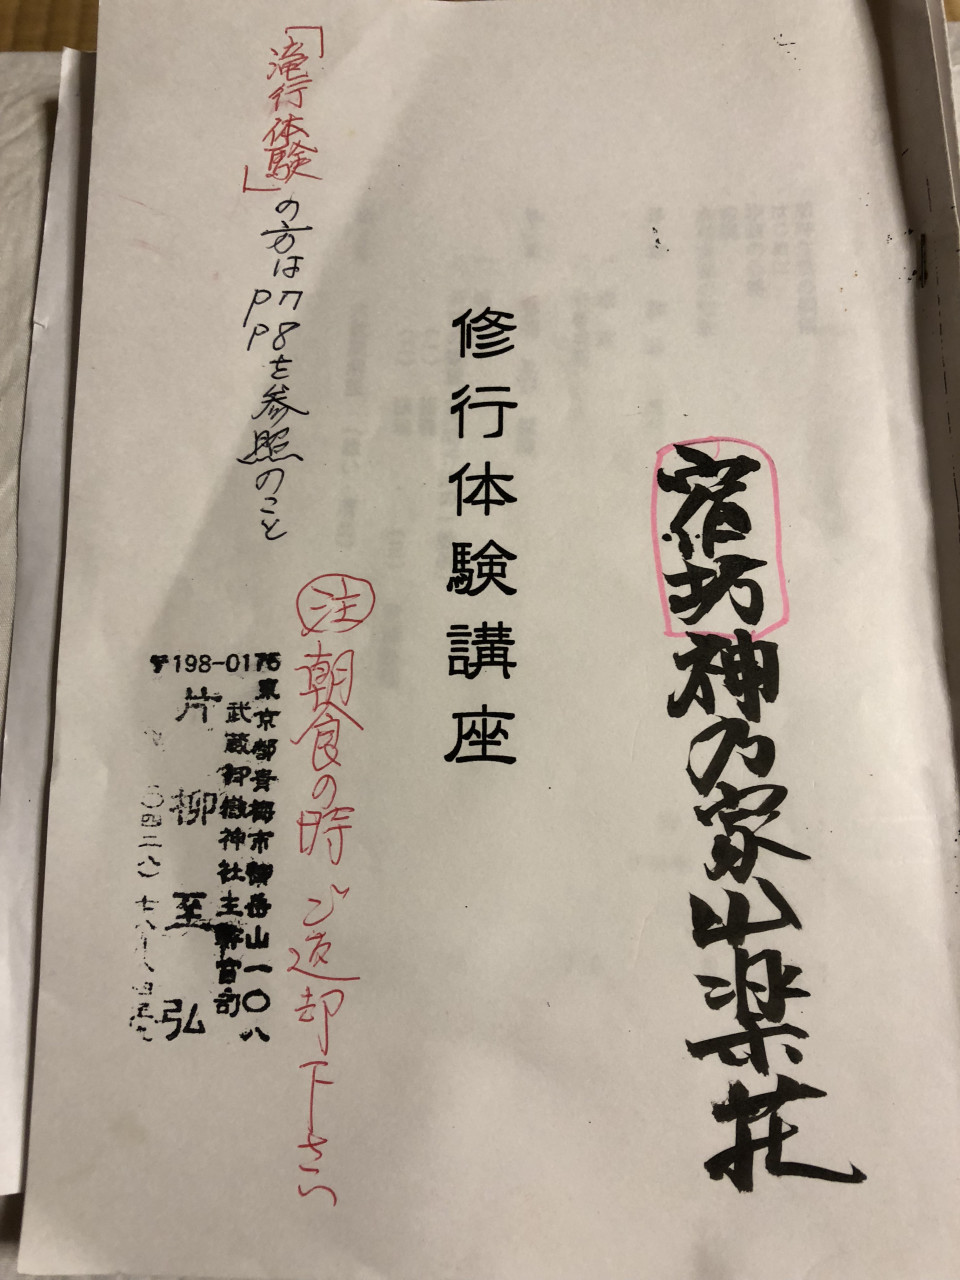 宿坊神乃家山楽荘
修行体験講座
㊟朝食の時ご返却下さい
「滝行体験」の方はP7
P8を参照のこと
〒198-0175
東京都青梅市御岳山一〇八
武蔵御嶽神社主典官司
片柳至弘